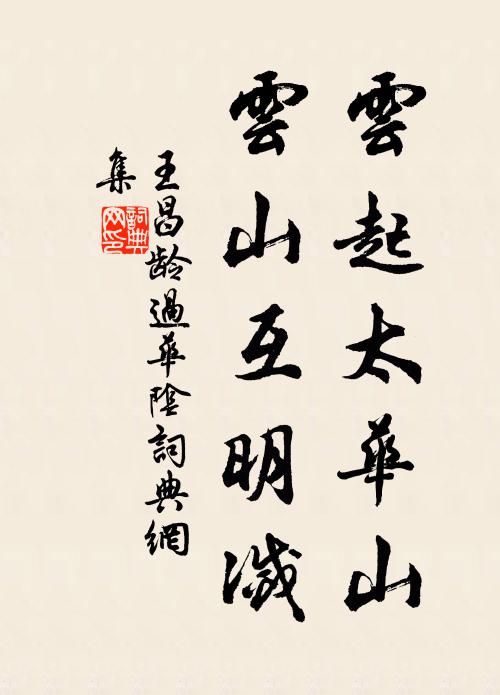 雲起太華山
雲山互明滅
王昌龄過華陰詞典網
集
詞典
网印